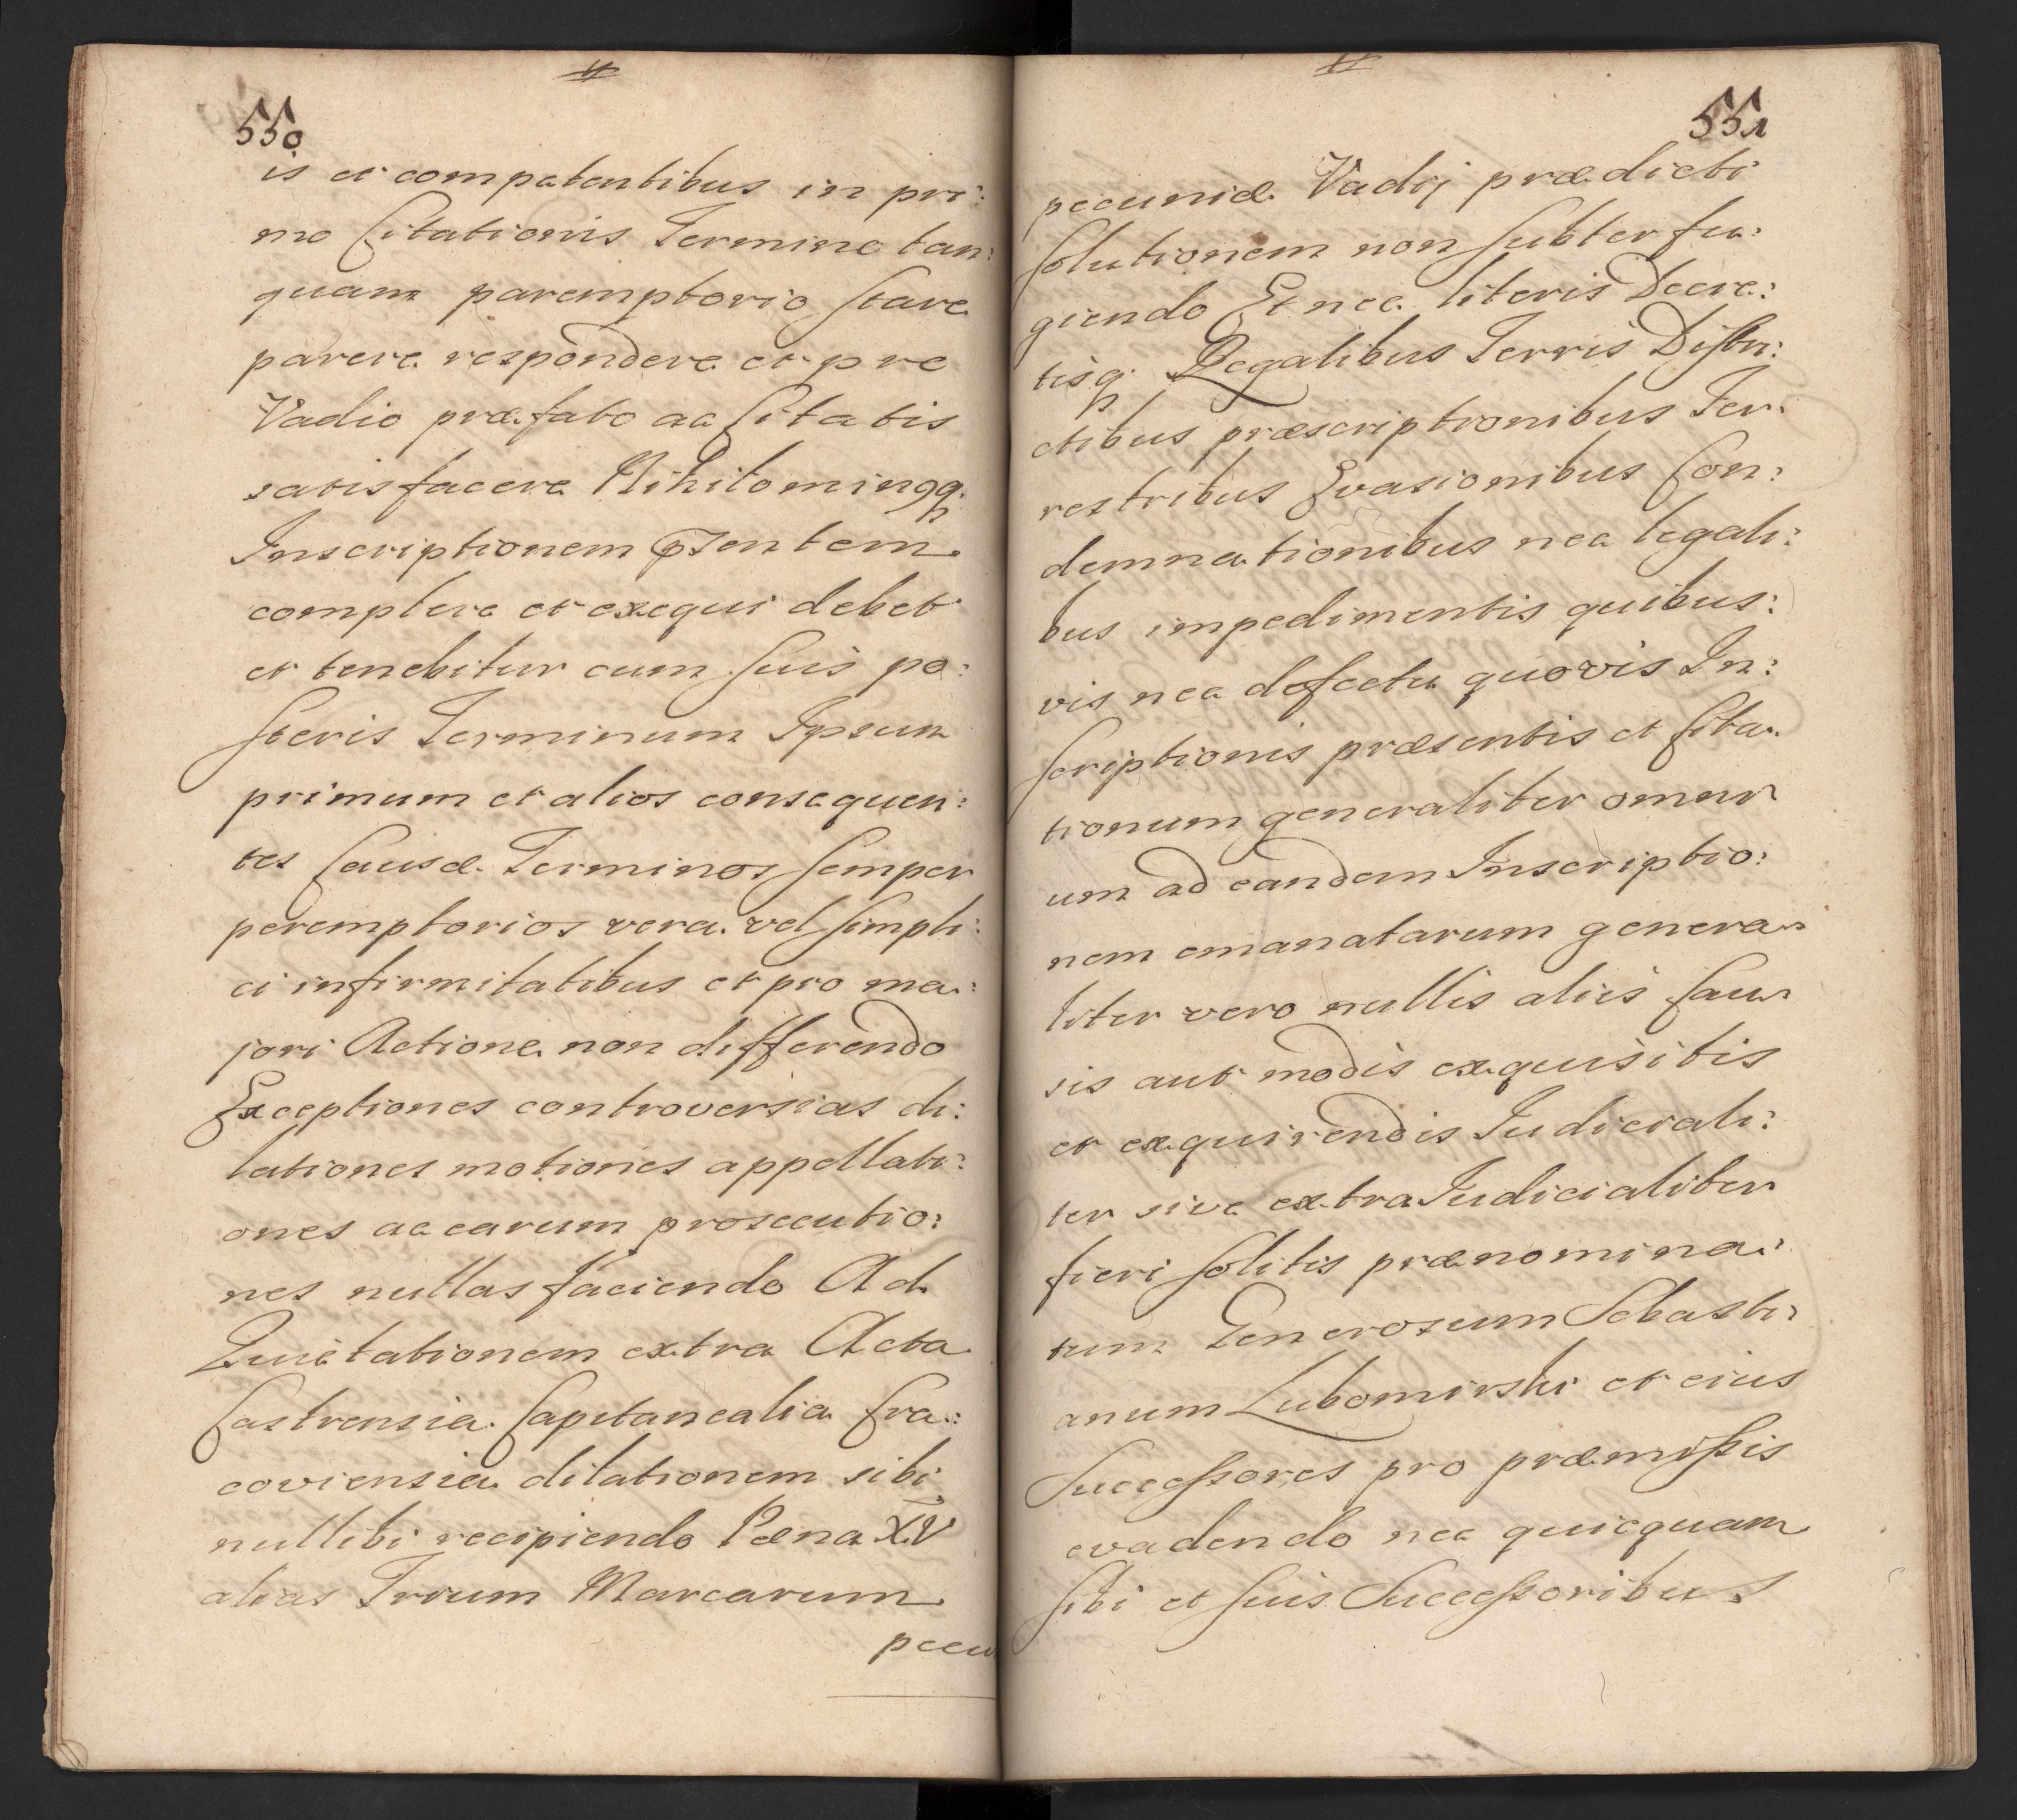 550
is et competentibus in pri:
mo Citationis Termino tan:
quam paremptorio stare
parere respondere et pro
Vadio præfato ac Citatis
satisfacere Nihilominqq
Inscriptionem pntem
complere et exequi debet
et tenebitur cum suis po:
steris Terminum Ipsum
primum et alios consequen:
tes Causæ Terminos semper
peremptorios vera vel simpli:
ci infirmitatibus et pro ma:
jori Actione non differendo
Exceptiones controversias di:
lationes motiones appellati:
ones ac earum prosecutio:
nes nullas faciendo Ad
Quietationem extra Acta
Castrensia Capitanealia Cra:
coviensia dilationem sibi
nullibi recipiendo Pæna XV
alias Trium Marcarum
pecu
551
pecuniæ Vadij prædicti
solutionem non subterfu:
giendo Et nec literis Decre:
tisq Regalibus Terris Distri:
ctibus præscriptionibus Ter:
restribus Evasionibus Con:
demnationibus nec legali:
bus impedimentis quibus:
vis nec defectu quovis In:
scriptionis præsentis et Cita:
tionum generaliter omni
um ad eandem Inscriptio:
nem emanatarum genera:
liter vero nullis aliis Cau:
sis aut modis exquisitis
et exquirendis Iudiciali:
ter sive extraIudicialiter
fieri solitis prænomina:
tum Generosum Sebasti:
anum Lubomirski et eius
Successores pro præmissis
evadendo nec quicquam
sibi et suis Successoribus